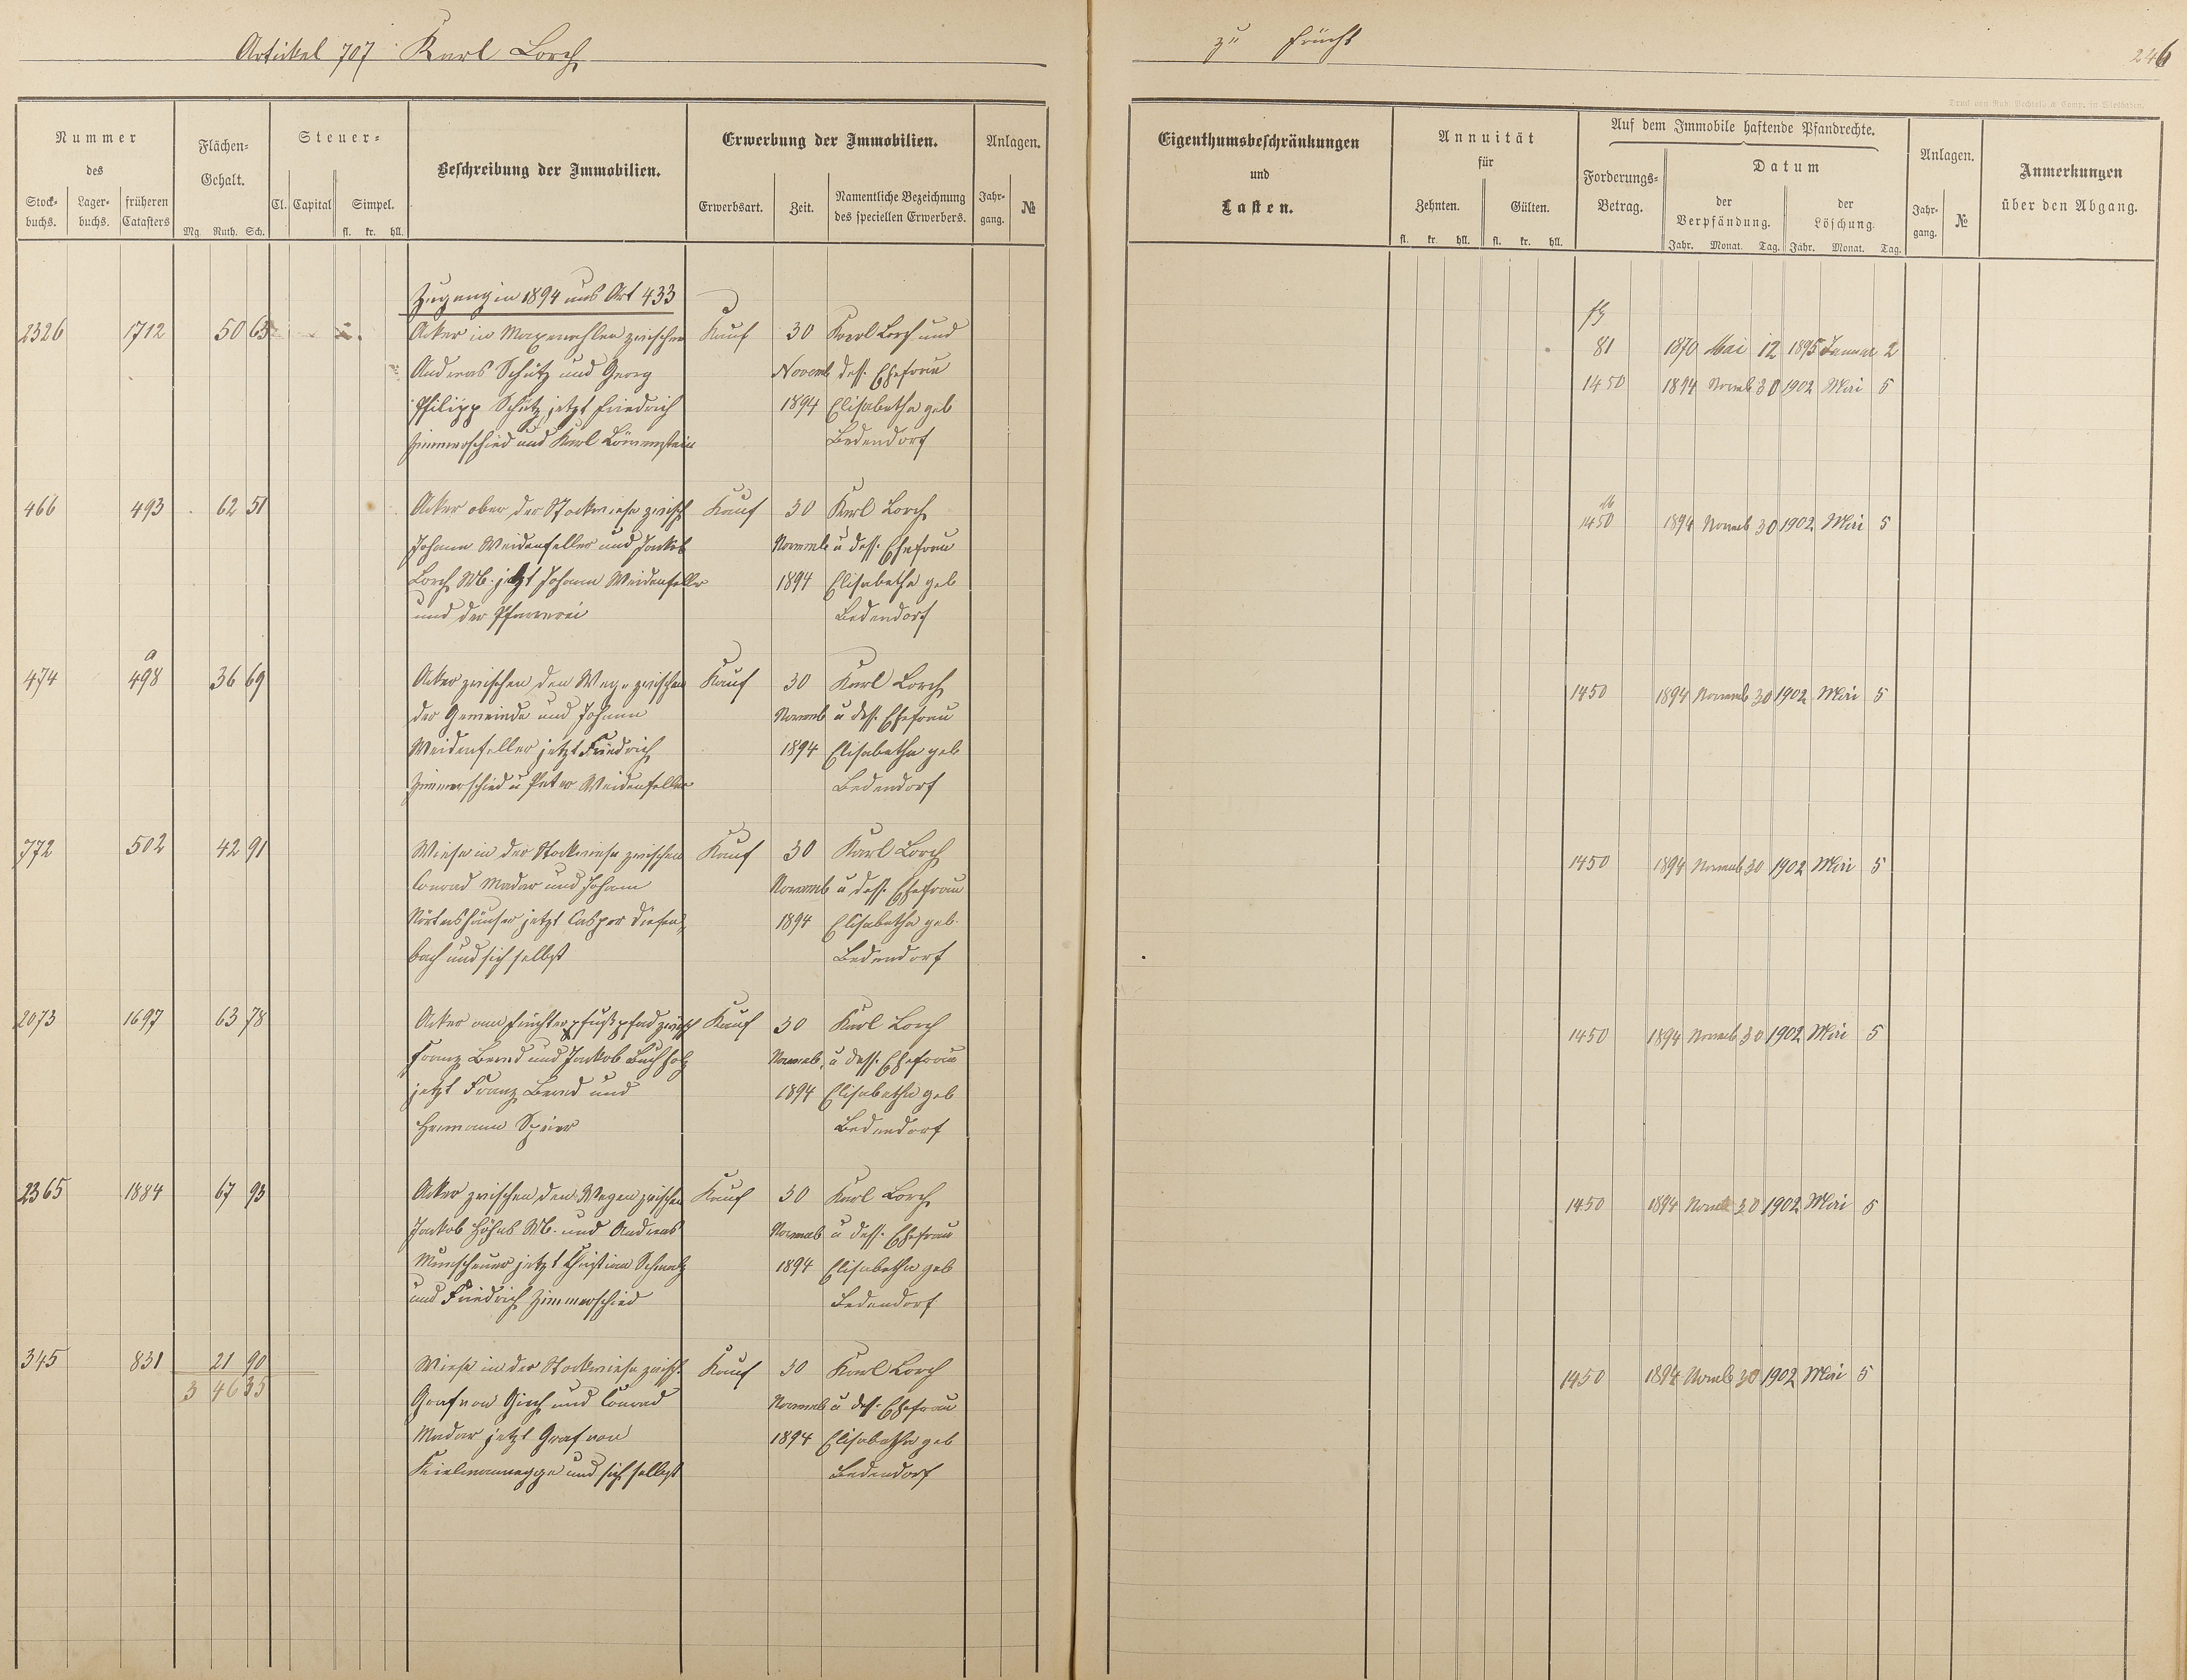 Artickel 707 Karl Lorch
zu Frücht
246
Nummer
des
Stock-
buchs.
Lager-
buchs.
früheren
Catasters
Flächen-
Gehalt.
Mg. Ruth. Sch.
Steuer-
Cl. Capital Simpel.
fl. kr. hll.
Beschreibung der Immobilien.
Erwerbung der Immobilien.
Erwerbsart. Zeit.
Namentliche Bezeichnung
des speciellen Erwerbers.
Anlagen.
Jahr-
gang.
№
Eigenthumsbeschränkungen
und
Lasten.
Annuität
für
Zehnten. Gülten.
fl. kr. hll. fl. kr. hll.
Auf dem Immobile haftende Pfandrechte.
Forderungs-
Betrag.
Datum
der
Verpfändung.
der
Löschung.
Jahr. Monat. Tag. Jahr. Monat. Tag.
Anlagen.
Jahr-
gang.
№
Anmerkungen
über den Abgang.
Zugang in 1894 aus Art 433
2326 1712 50 63 Acker in zwischen Kauf 30 Karl Lorch und
81 1870 Mai 12 1895 Januar 2
Andreas Schütz und Georg Novemb dess. Ehefrau
1450 1894 Novemb 30 1902 Mai 5
Philipp Schütz jetzt Friedrich 1894 Elisabetha geb
Zimmerschied und Karl Löwenstein Bedendorf
466 493 62 51 Acker ober der Stockwiese zwisch Kauf 30 Karl Lorch
1450 1894 Novemb 30 1902 Mai 5
Johann Weidenfeller und Jakob Novemb u dess. Ehefrau
Lorch Wb. jetzt Johann Weidenfeller 1894 Elisabetha geb
und der Pfarrerei Bedendorf
474 498 a 36 69 Acker zwischen den Wege zwischen Kauf 30 Karl Lorch
1450 1894 Novemb 30 1902 Mai 5
der Gemeinde und Johann Novemb u dess. Ehefrau
Weidenfeller jetzt Friedrich 1894 Elisabetha geb
Zimmerschied u Peter Weidenfeller Bedendorf
772 502 42 91 Wiese in der Stockwiese zwischen Kauf 30 Karl Lorch
1450 1894 Novemb 30 1902 Mai 5
Conrad Mader und Johann Novemb u dess. Ehefrau
jetzt Casper Diefen- 1894 Elisabetha geb.
bach und sich selbst Bedendorf
2073 1697 63 78 Acker am Früchter fußpfad zwisch Kauf 30 Karl Lorch
1450 1894 Novemb 30 1902 Mai 5
Franz Bernd und Jakob Buchholz Novemb. u dess. Ehefrau
jetzt Franz Bernd und 1894 Elisabetha geb
Hermann Speier Bedendorf
2365 1884 67 93 Acker zwischen den Wegen zwischen Kauf 30 Karl Lorch
1450 1894 Novemb 30 1902 Mai 5
Jakob Höhns Wb. und Andreas Novemb u dess. Ehefrau
Münscheuer jetzt Christian Schmelz 1894 Elisabetha geb
und Friedrich Zimmerschied Bedendorf
345 831 21 90 Wiese in der Stockwiese zwisch. Kauf 30 Karl Lorch
1450 1894 Novemb 30 1902 Mai 5
3 46 35 Graf von Giech und Conrad Novemb u dess. Ehefrau
Mader jetzt Graf von 1894 Elisabetha geb
Kielmannsegge und sich selbst Bedendorf